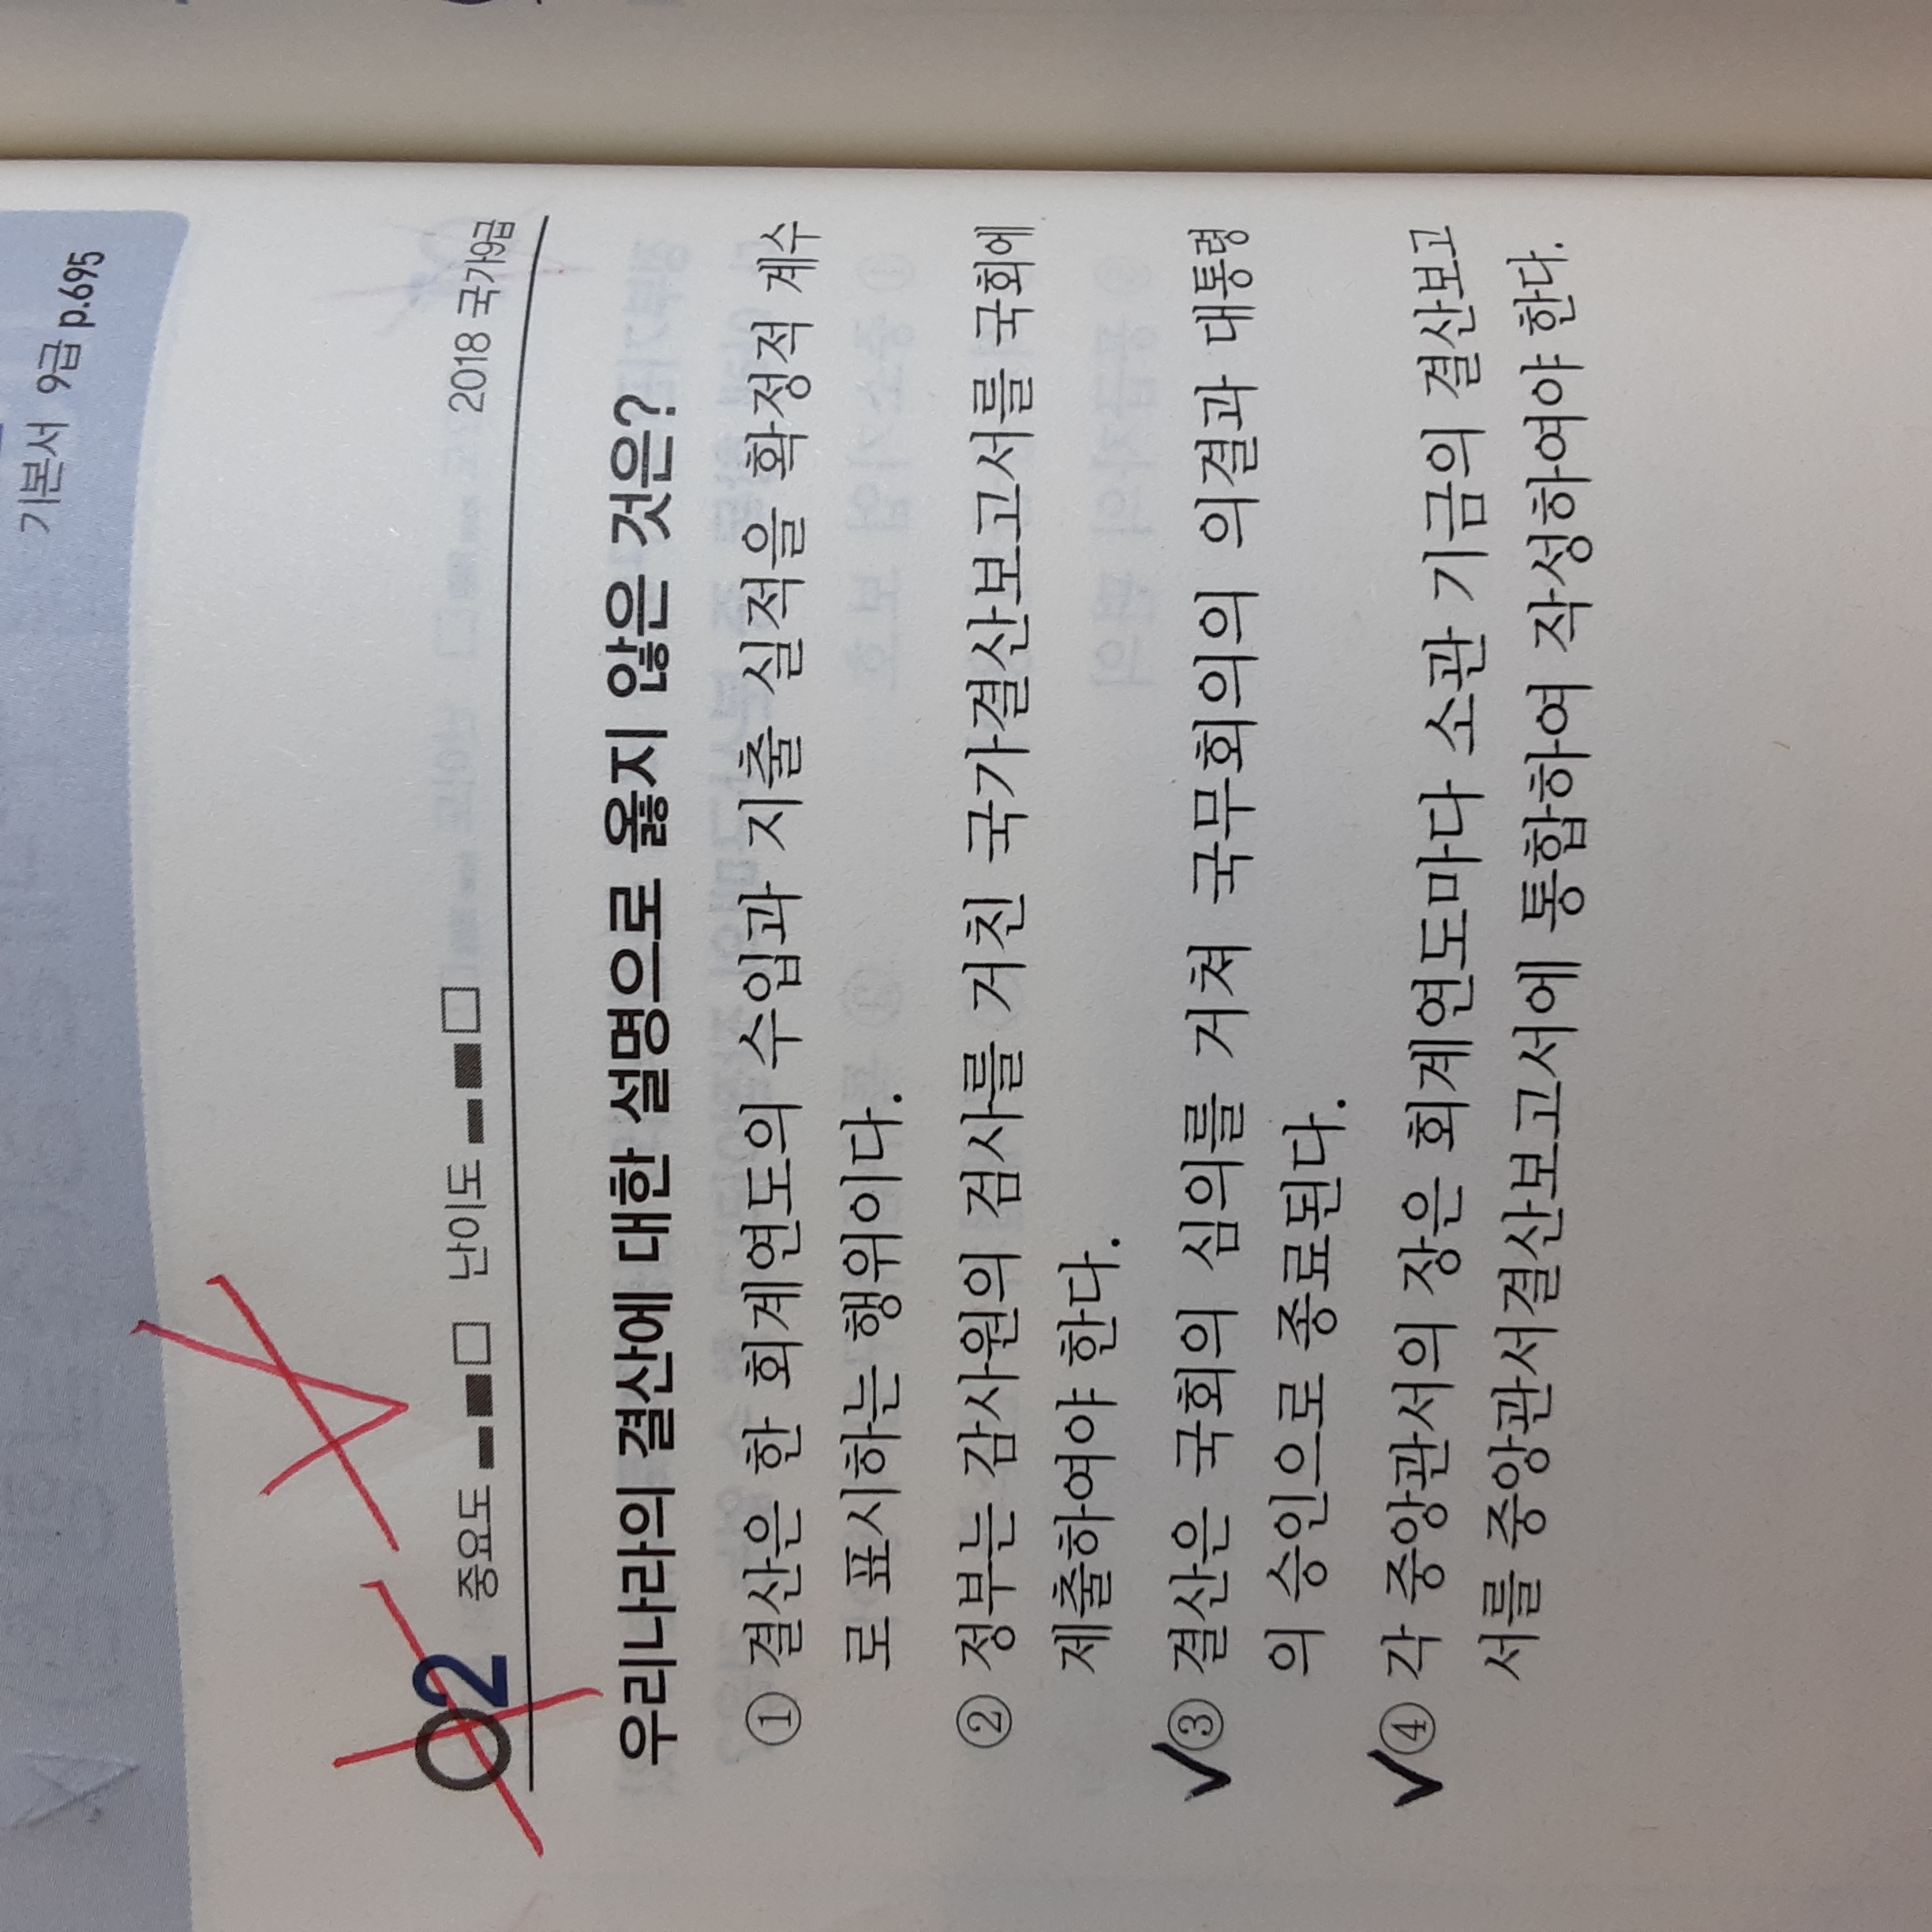 기본서 9급 p.695
02 중요도 난이도 2018 국가9급
우리나라의 결산에 대한 설명으로 옳지 않은 것은?
① 결산은 한 회계연도의 수입과 지출 실적을 확정적 계수
로 표시하는 행위이다.
② 정부는 감사원의 검사를 거친 국가결산보고서를 국회에
제출하여야 한다.
③ 결산은 국회의 심의를 거쳐 국무회의의 의결과 대통령
의 승인으로 종료된다.
④ 각 중앙관서의 장은 회계연도마다 소관 기금의 결산보고
서를 중앙관서결산보고서에 통합하여 작성하여야 한다.